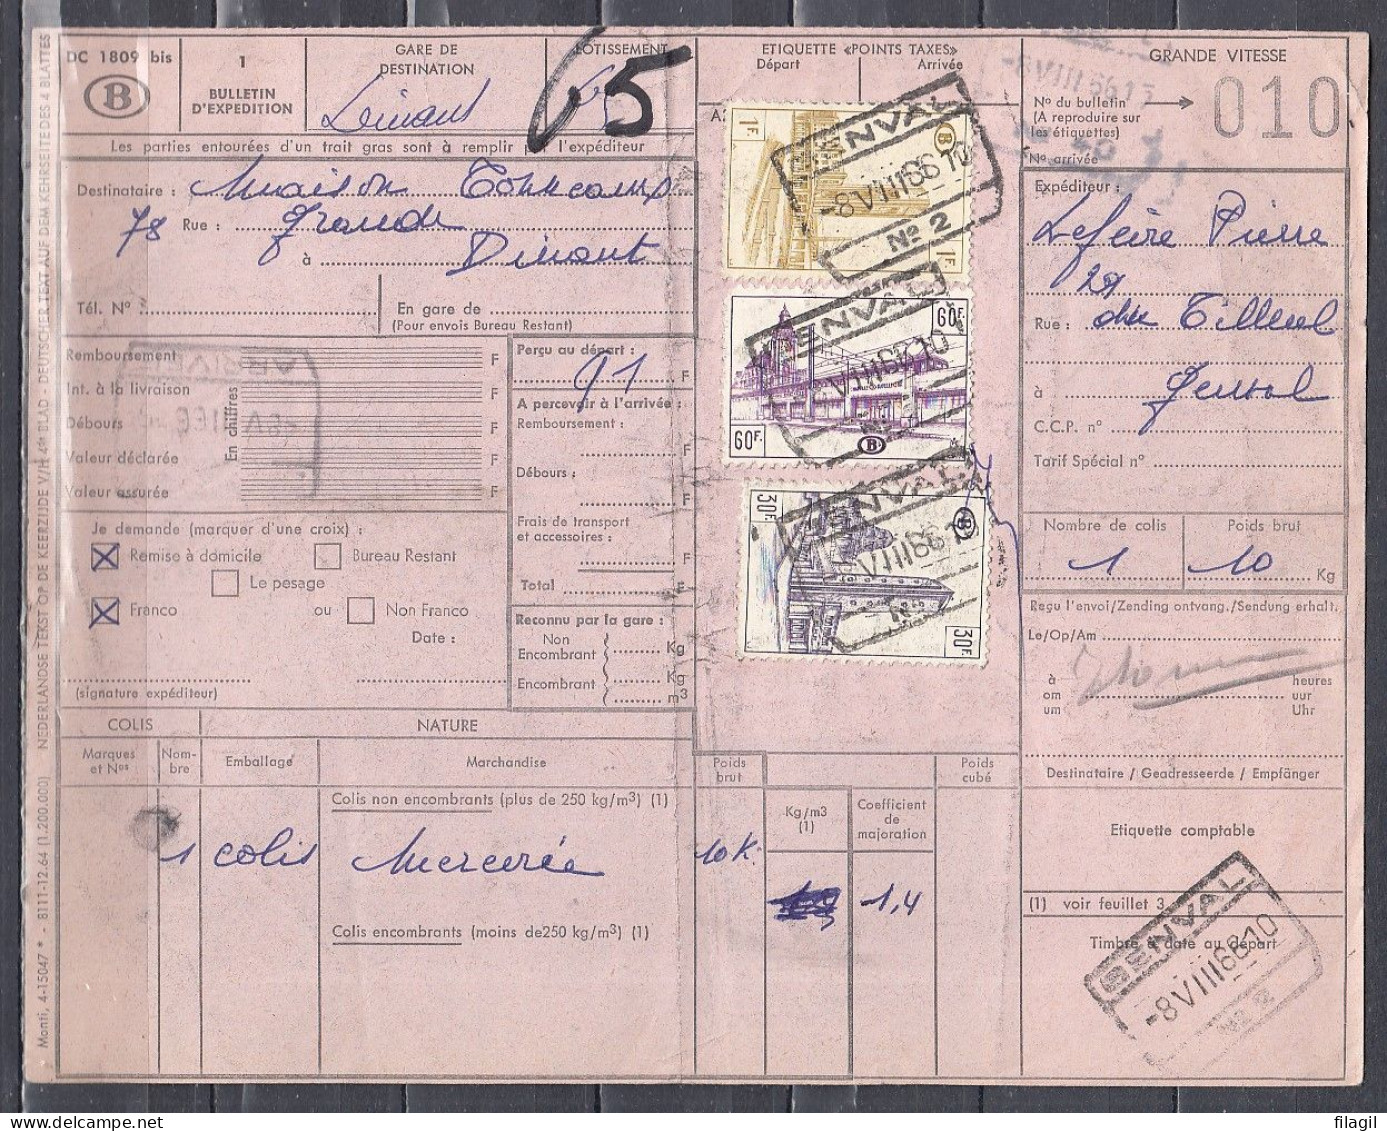 DC 1809 bis
B
1
BULLETIN
D'EXPEDITION
GARE DE
DESTINATION
Dinant
LOTISSEMENT
65
ETIQUETTE «POINTS TAXES»
Départ
Arrivée
GRANDE VITESSE
Nº du bulletin
(A reproduire sur
les étiquettes)
010
Nº arrivée
-8 VIII 66 1
Les parties entourées d'un trait gras sont à remplir par l'expéditeur
Destinataire : Maison
78 Rue : Grande
à Dinant
Tél. Nº
En gare de
(Pour envois Bureau Restant)
Expéditeur :
Pierre
29
Rue : du Tilleul
à Genval
C.C.P. nº
Tarif Spécial nº
1F.
B
1F.
GENVAL
-8 VIII 66 10
Nº 2
60F.
60F.
B
GENVAL
30F.
B
30F.
GENVAL
VIII 66 10
Nº
Remboursement F
Int. à la livraison F
Débours F
Valeur déclarée F
Valeur assurée F
En chiffres
Perçu au départ :
91 F
A percevoir à l'arrivée :
Remboursement :
F
Débours :
F
Frais de transport
et accessoires :
F
Total F
Je demande (marquer d'une croix) :
Remise à domicile
Bureau Restant
Le pesage
Franco
ou
Non Franco
Date :
(signature expéditeur)
Reconnu par la gare :
Non
Encombrant
Kg
Encombrant
Kg
m3
Nombre de colis
1
Poids brut
10 Kg
Reçu l'envoi/Zending ontvang./Sendung erhalt.
Le/Op/Am
à
om
um
heures
uur
Uhr
Destinataire / Geadresseerde / Empfänger
COLIS
NATURE
Marques
et Nos
Nom-
bre
Emballage
Marchandise
Poids
brut
Poids
cubé
Colis non encombrants (plus de 250 kg/m3) (1)
Kg/m3
(1)
Coefficient
de
majoration
1 colis Mercerie 10 K.
1,4
Colis encombrants (moins de 250 kg/m3) (1)
Etiquette comptable
(1) voir feuillet 3
Timbre à date au départ
GENVAL
-8 VIII 66 10
Nº 2
Monti, 4-15047 * - 8111-12.64 (1.200.000) NEDERLANDSE TEKST OP DE KEERZIJDE V/H 4de BLAD - DEUTSCHER TEXT AUF DEM KEHRSEITE DES 4 BLATTES
filagil